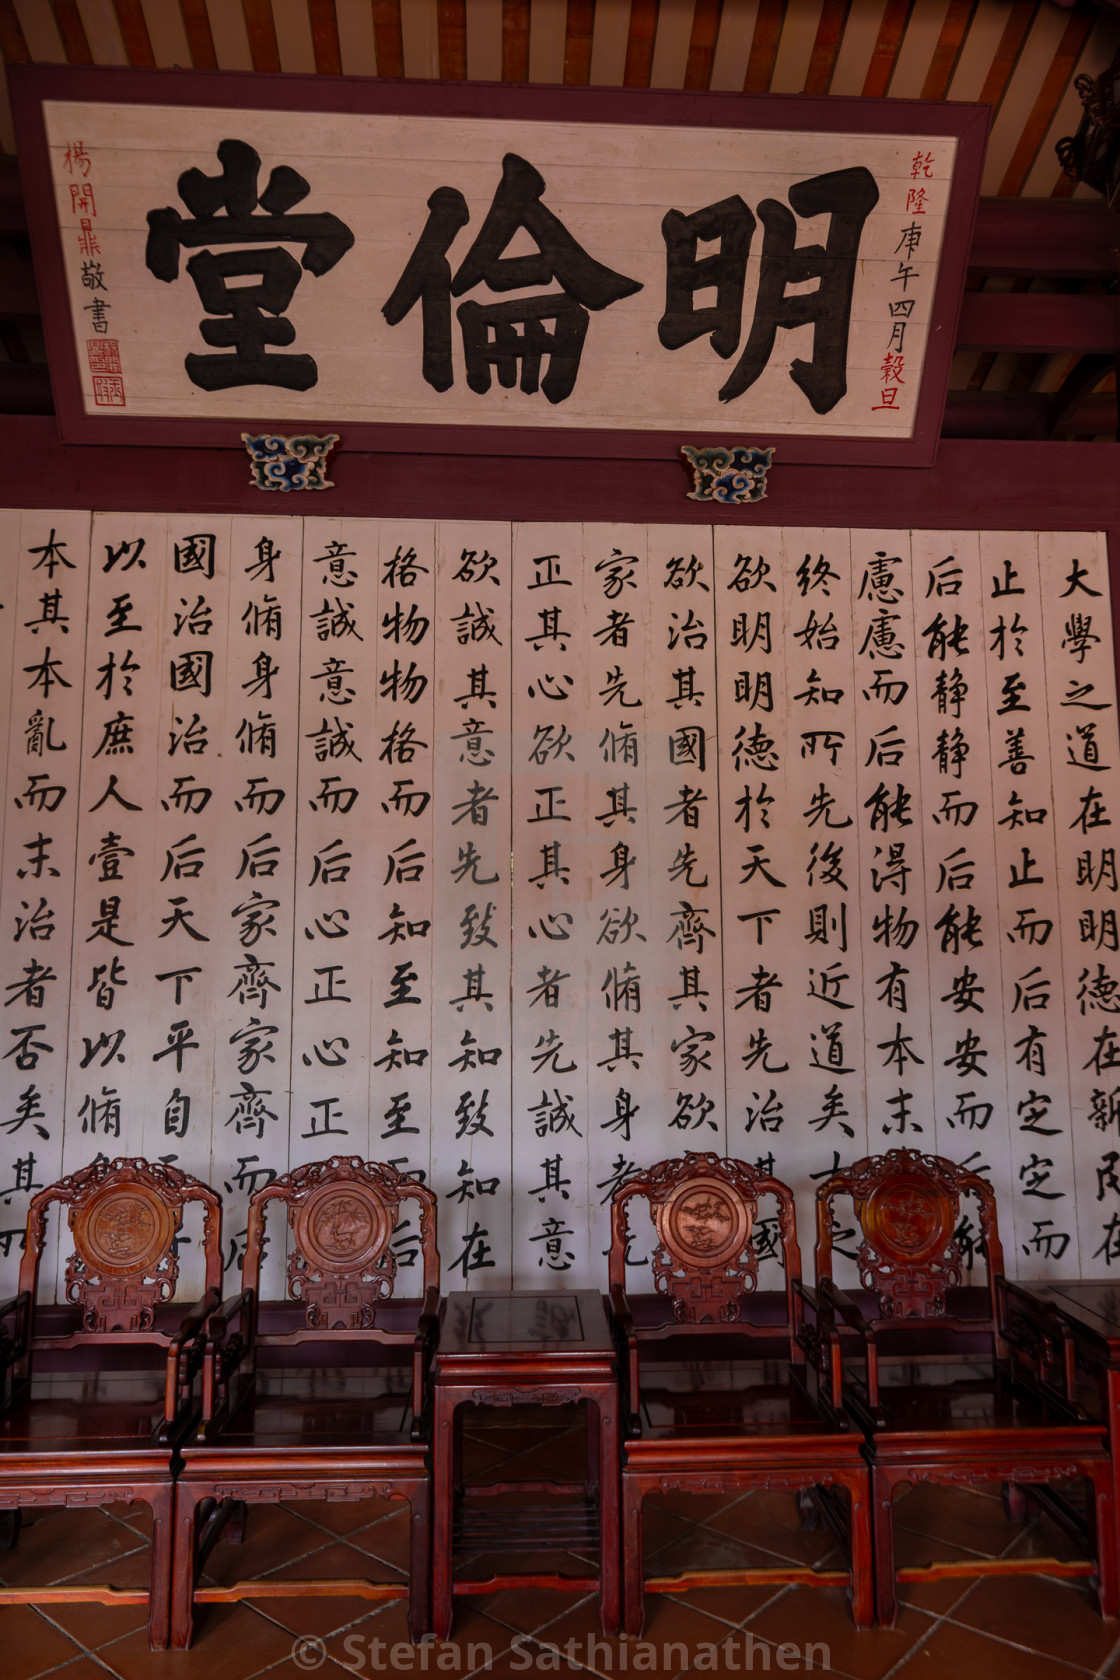 乾隆庚午四月穀旦
明倫堂
楊開鼎敬書
大學之道在明明德在新民在
止於至善知止而后有定定而
后能静静而后能安安而后能
慮慮而后能得物有本末
終始知所先後則近道矣古之
欲明明德於天下者先治其國
欲治其國者先齊其家欲
家者先脩其身欲脩其身者先
正其心欲正其心者先誠其意
欲誠其意者先致其知致知在
格物物格而后知至知至而后
意誠意誠而后心正心正
身脩身脩而后家齊家齊而后
國治國治而后天下平自天子
以至於庶人壹是皆以脩身
本其本亂而末治者否矣其所
© Stefan Sathianathen